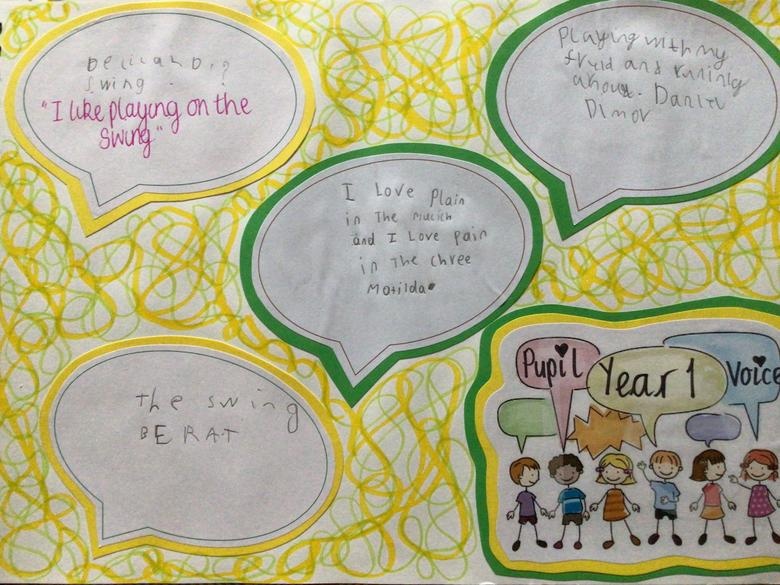 swing
"I like playing on the
Swing"
Playing with my
and
Daniel
Dimov
I Love Plain
in The mucich
and I Love pain
in The chree
Matilda
the swing
BERAT
Pupil
Year 1
Voice